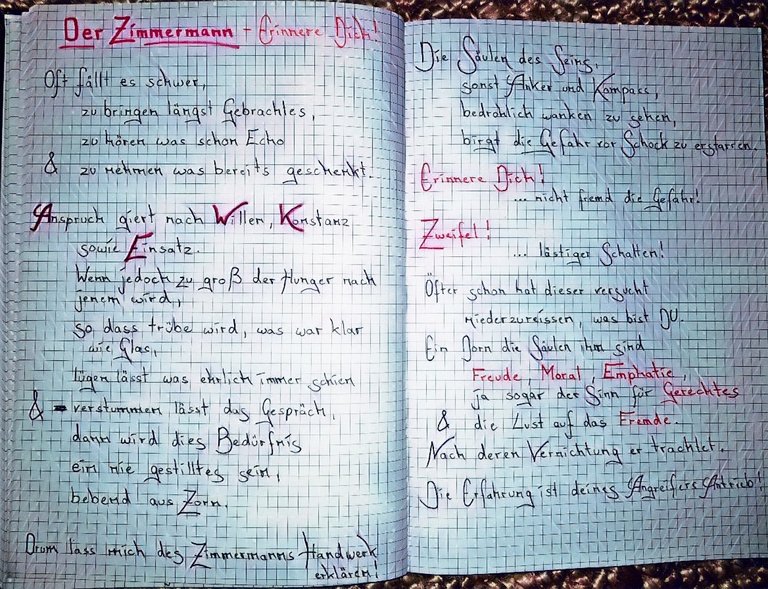 Der Zimmermann - Erinnere Dich!
Oft fällt es schwer,
zu bringen längst Gebrachtes,
zu hören was schon Echo
& zu nehmen was bereits geschenkt.
Anspruch giert nach Willen, Konstanz
sowie Einsatz.
Wenn jedoch zu groß der Hunger nach
jenem wird,
so dass trübe wird, was war klar
wie Glas,
lügen lässt was ehrlich immer schien
& verstummen lässt das Gespräch,
dann wird dies Bedürfnis
ein nie gestilltes sein,
bebend aus Zorn.
Drum lass mich des Zimmermanns Handwerk
erklären!
Die Säulen des Seins,
sonst Anker und Kompass,
bedrohlich wanken zu sehen,
birgt die Gefahr vor Schock zu erstarren.
Erinnere Dich!
... nicht fremd die Gefahr!
Zweifel!
... lästiger Schatten!
Öfter schon hat dieser versucht
niederzureissen, was bist DU.
Ein Dorn die Säulen ihm sind
Freude, Moral, Emphatie,
ja sogar der Sinn für Gerechtes
& die Lust auf das Fremde.
Nach deren Vernichtung er trachtet.
Die Erfahrung ist deines Angreifers Antrieb!